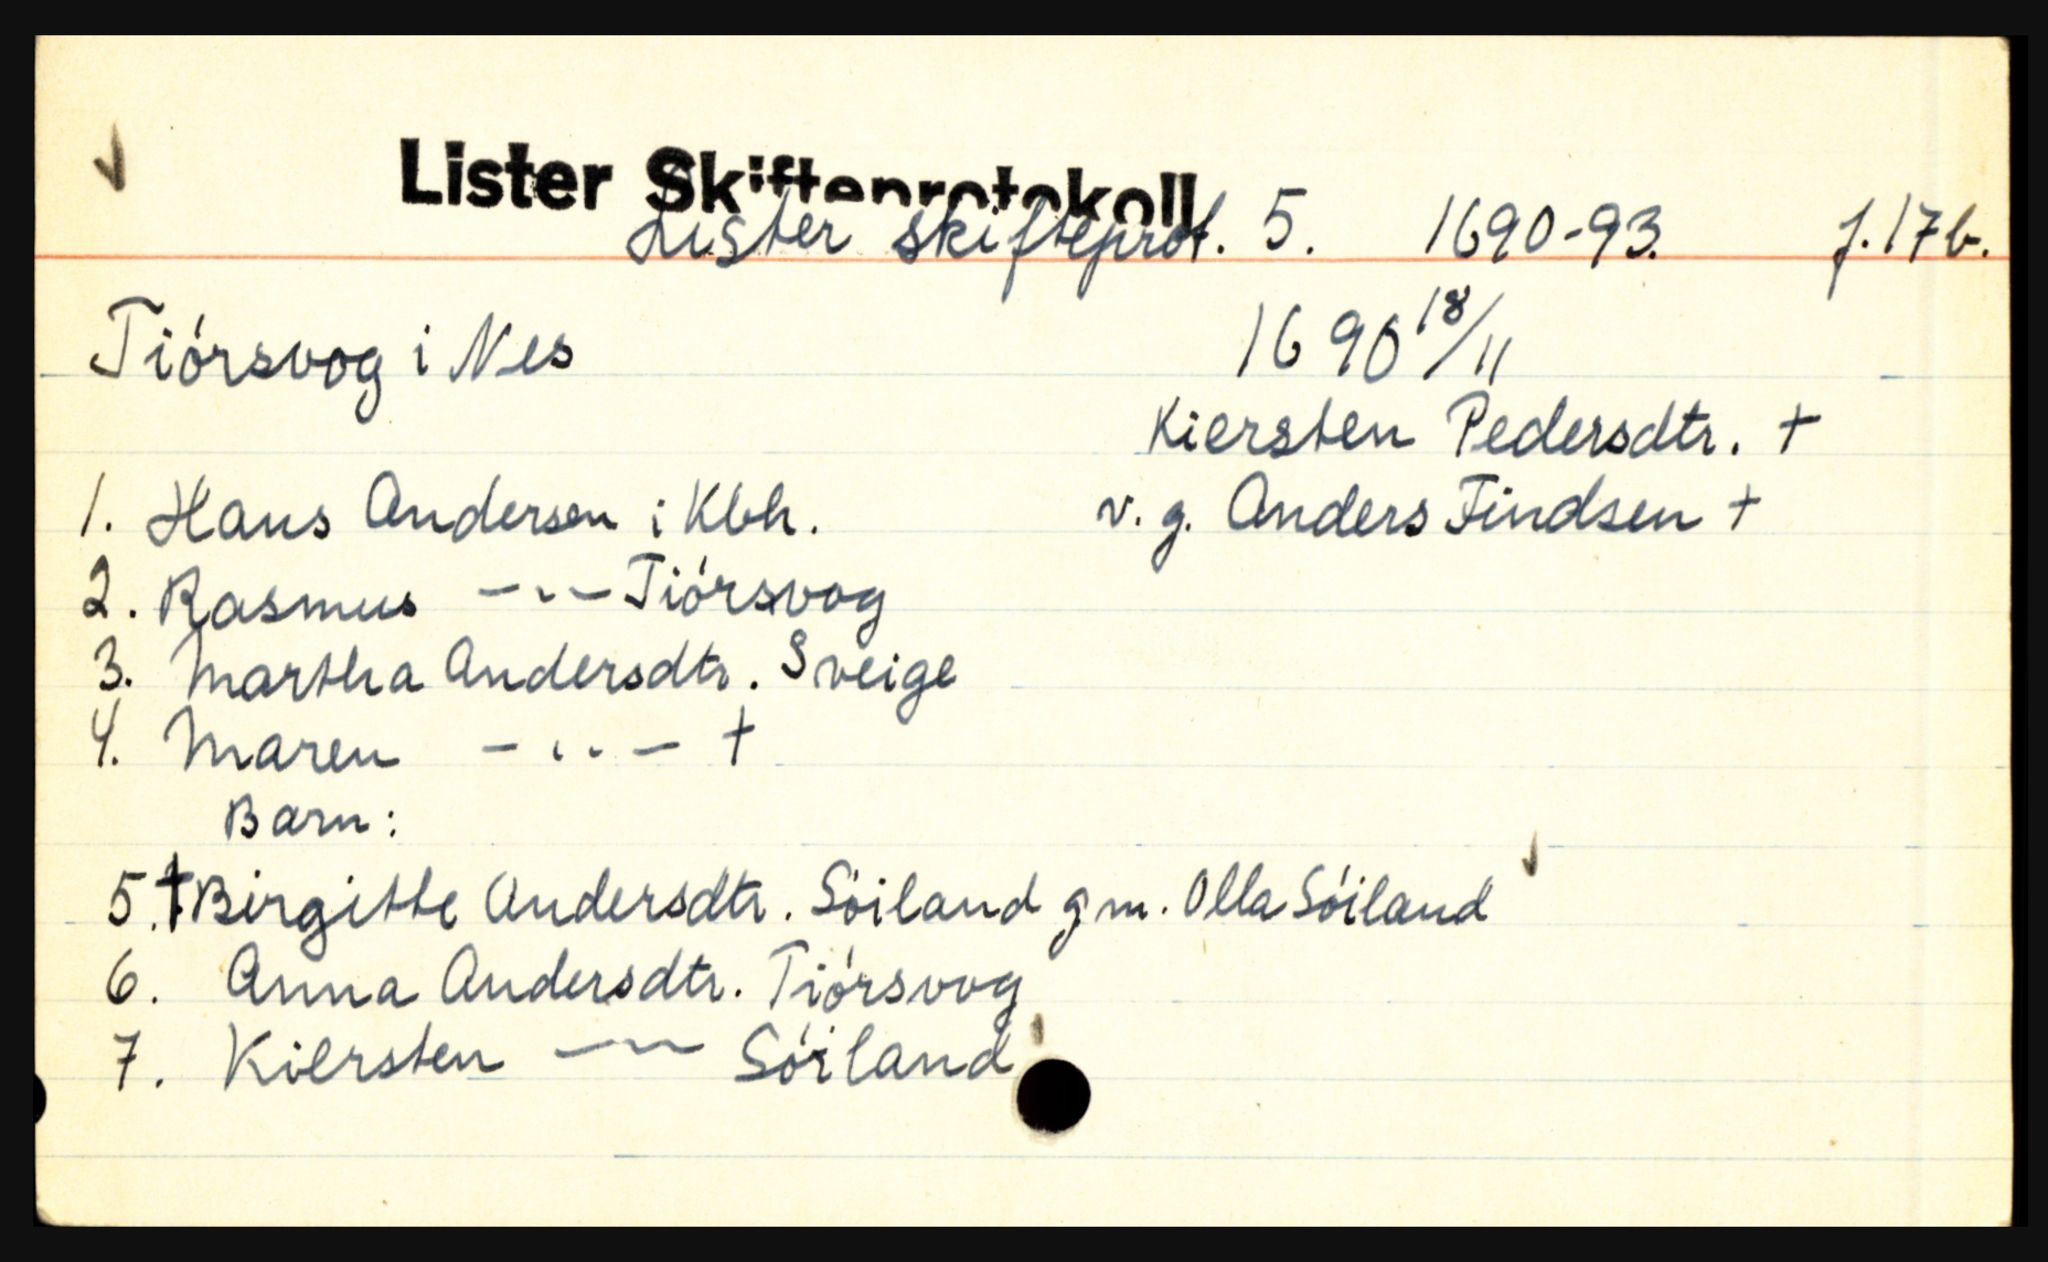 Lister Skifteprotokoll
Lister skifteprot. 5. 1690-93. f. 17b.
Tiórsvog i Nes 1690 18/11
Kiersten Pedersdtr. +
1. Hans Andersen i Kbh. v. g. Anders Findsen +
2. Rasmus -..- Tiórsvog
3. Martha Andersdtr. Sveige
4. Maren -..- +
Barn:
5. + Birgitte Andersdtr. Sóiland gm. Olla Sóiland
6. Anna Andersdtr. Tiórsvog
7. Kiersten -..- Sóiland